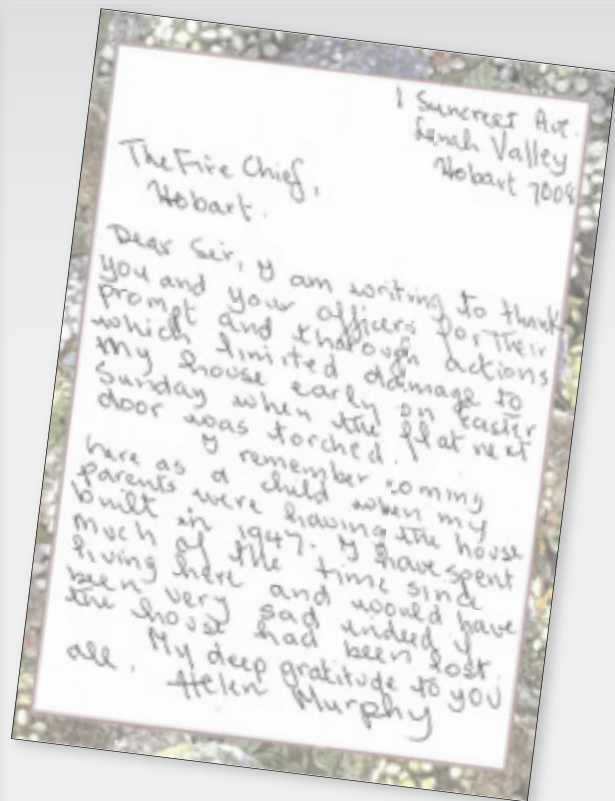 1 Suncrest Ave.
Lenah Valley
Hobart 7008
The Fire Chief,
Hobart.
Dear Sir, I am writing to thank
you and your officers for Their
prompt and thorough actions
which limited damage to
my house early on Easter
Sunday when the flat next
door was torched.
I remember coming
here as a child when my
parents were having the house
built in 1947. I have spent
much of the time since
living here and would have
been very sad indeed if
the house had been lost.
My deep gratitude to you
all.
Helen Murphy